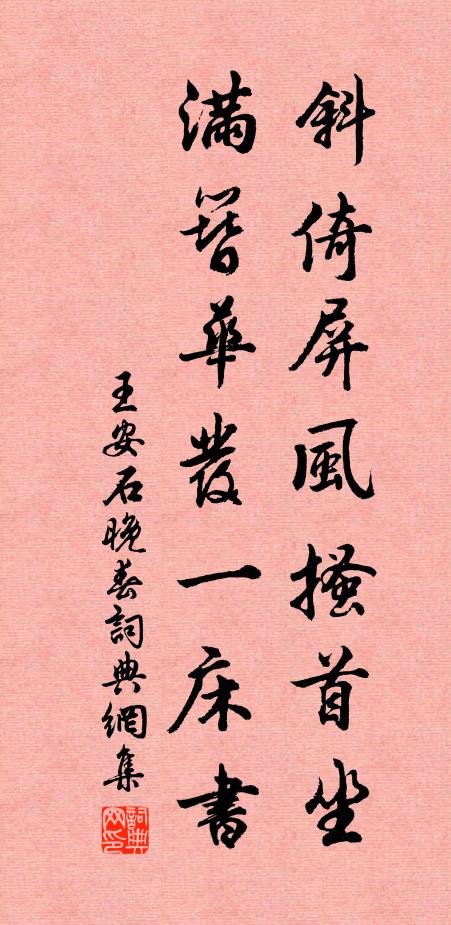 斜倚屏風搔首坐
滿簪華發一床書
王安石晚春詞典網集
詞典網印